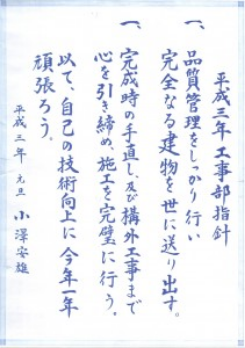 平成三年 工事部指針
一、品質管理をしっかり行い
完全なる建物を世に送り出す。
一、完成時の手直し、及び構外工事まで
心を引き締め、施工を完璧に行う。
以て、自己の技術向上に今年一年
頑張ろう。
平成三年 元旦 小澤安雄